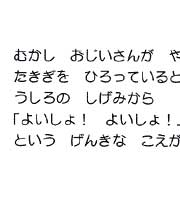 むかし　おじいさんが　や
たきぎを　ひろっていると
うしろの　しげみから
「よいしょ！　よいしょ！」
という　げんきな　こえが